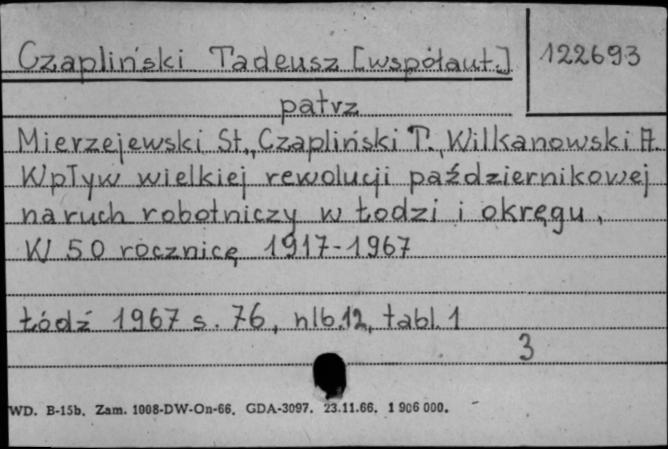 Czapliński Tadeusz [współaut.]
122693
patrz
Mierzejewski St., Czapliński T., Wilkanowski A.
Wpływ wielkiej rewolucji październikowej
na ruch robotniczy w Łodzi i okręgu.
W 50 rocznicę 1917-1967
Łódź 1967 s. 76, nlb.12, tabl. 1
3
WD. B-15b. Zam. 1008-DW-On-66. GDA-3097. 23.11.66. 1 906 000.